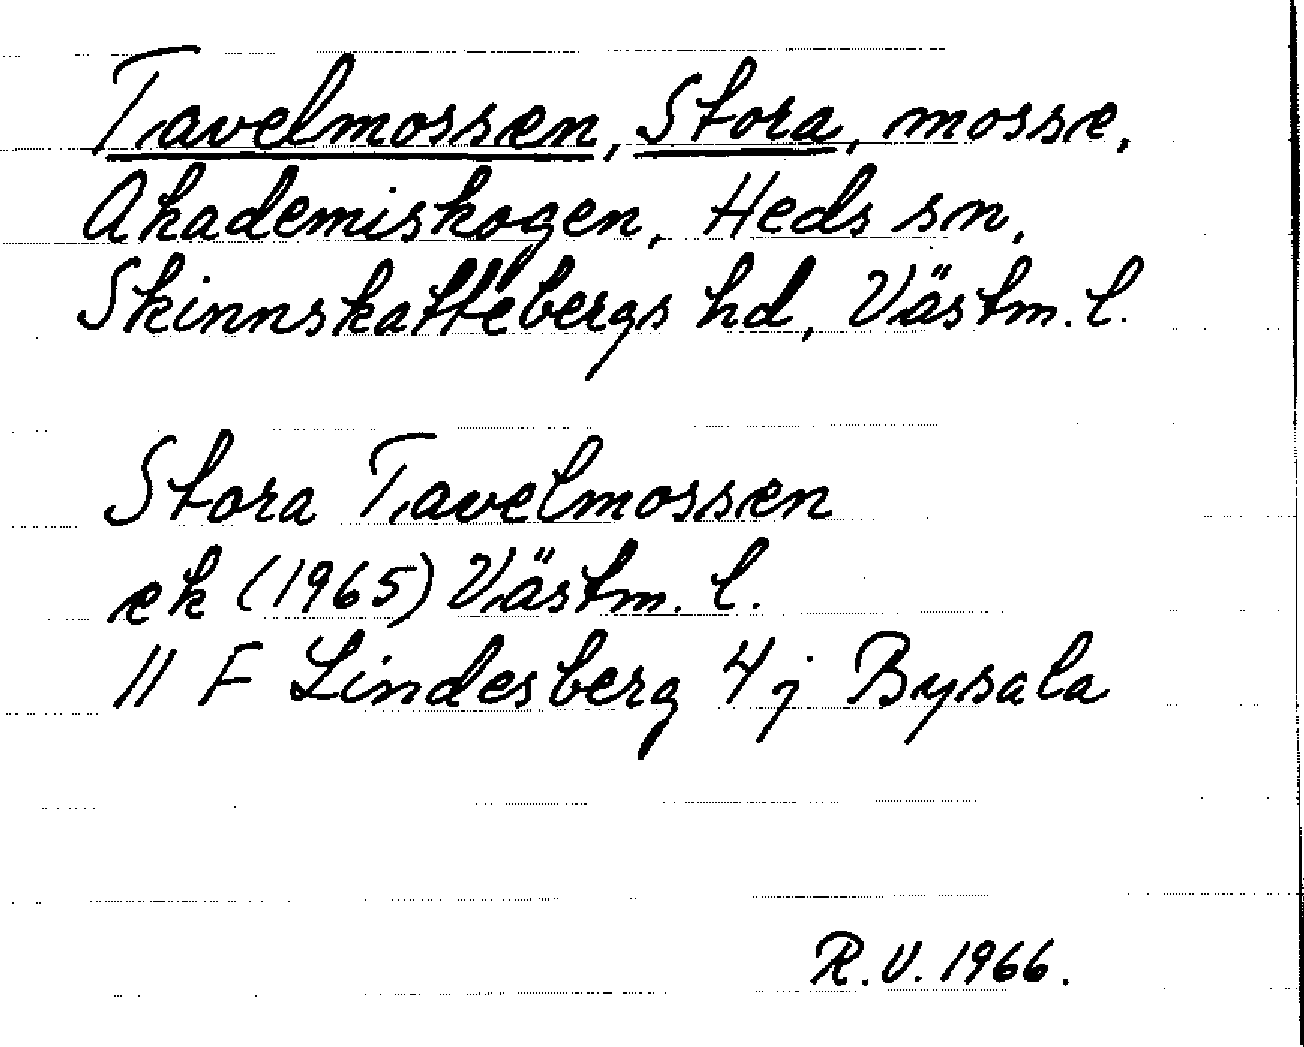 Tavelmossen, Stora, mosse,
Akademiskogen, Heds sn,
Skinnskattebergs hd, Västm. l.
Stora Tavelmossen
ek (1965) Västm. l.
11 F Lindesberg 4j Bysala
R.V. 1966.